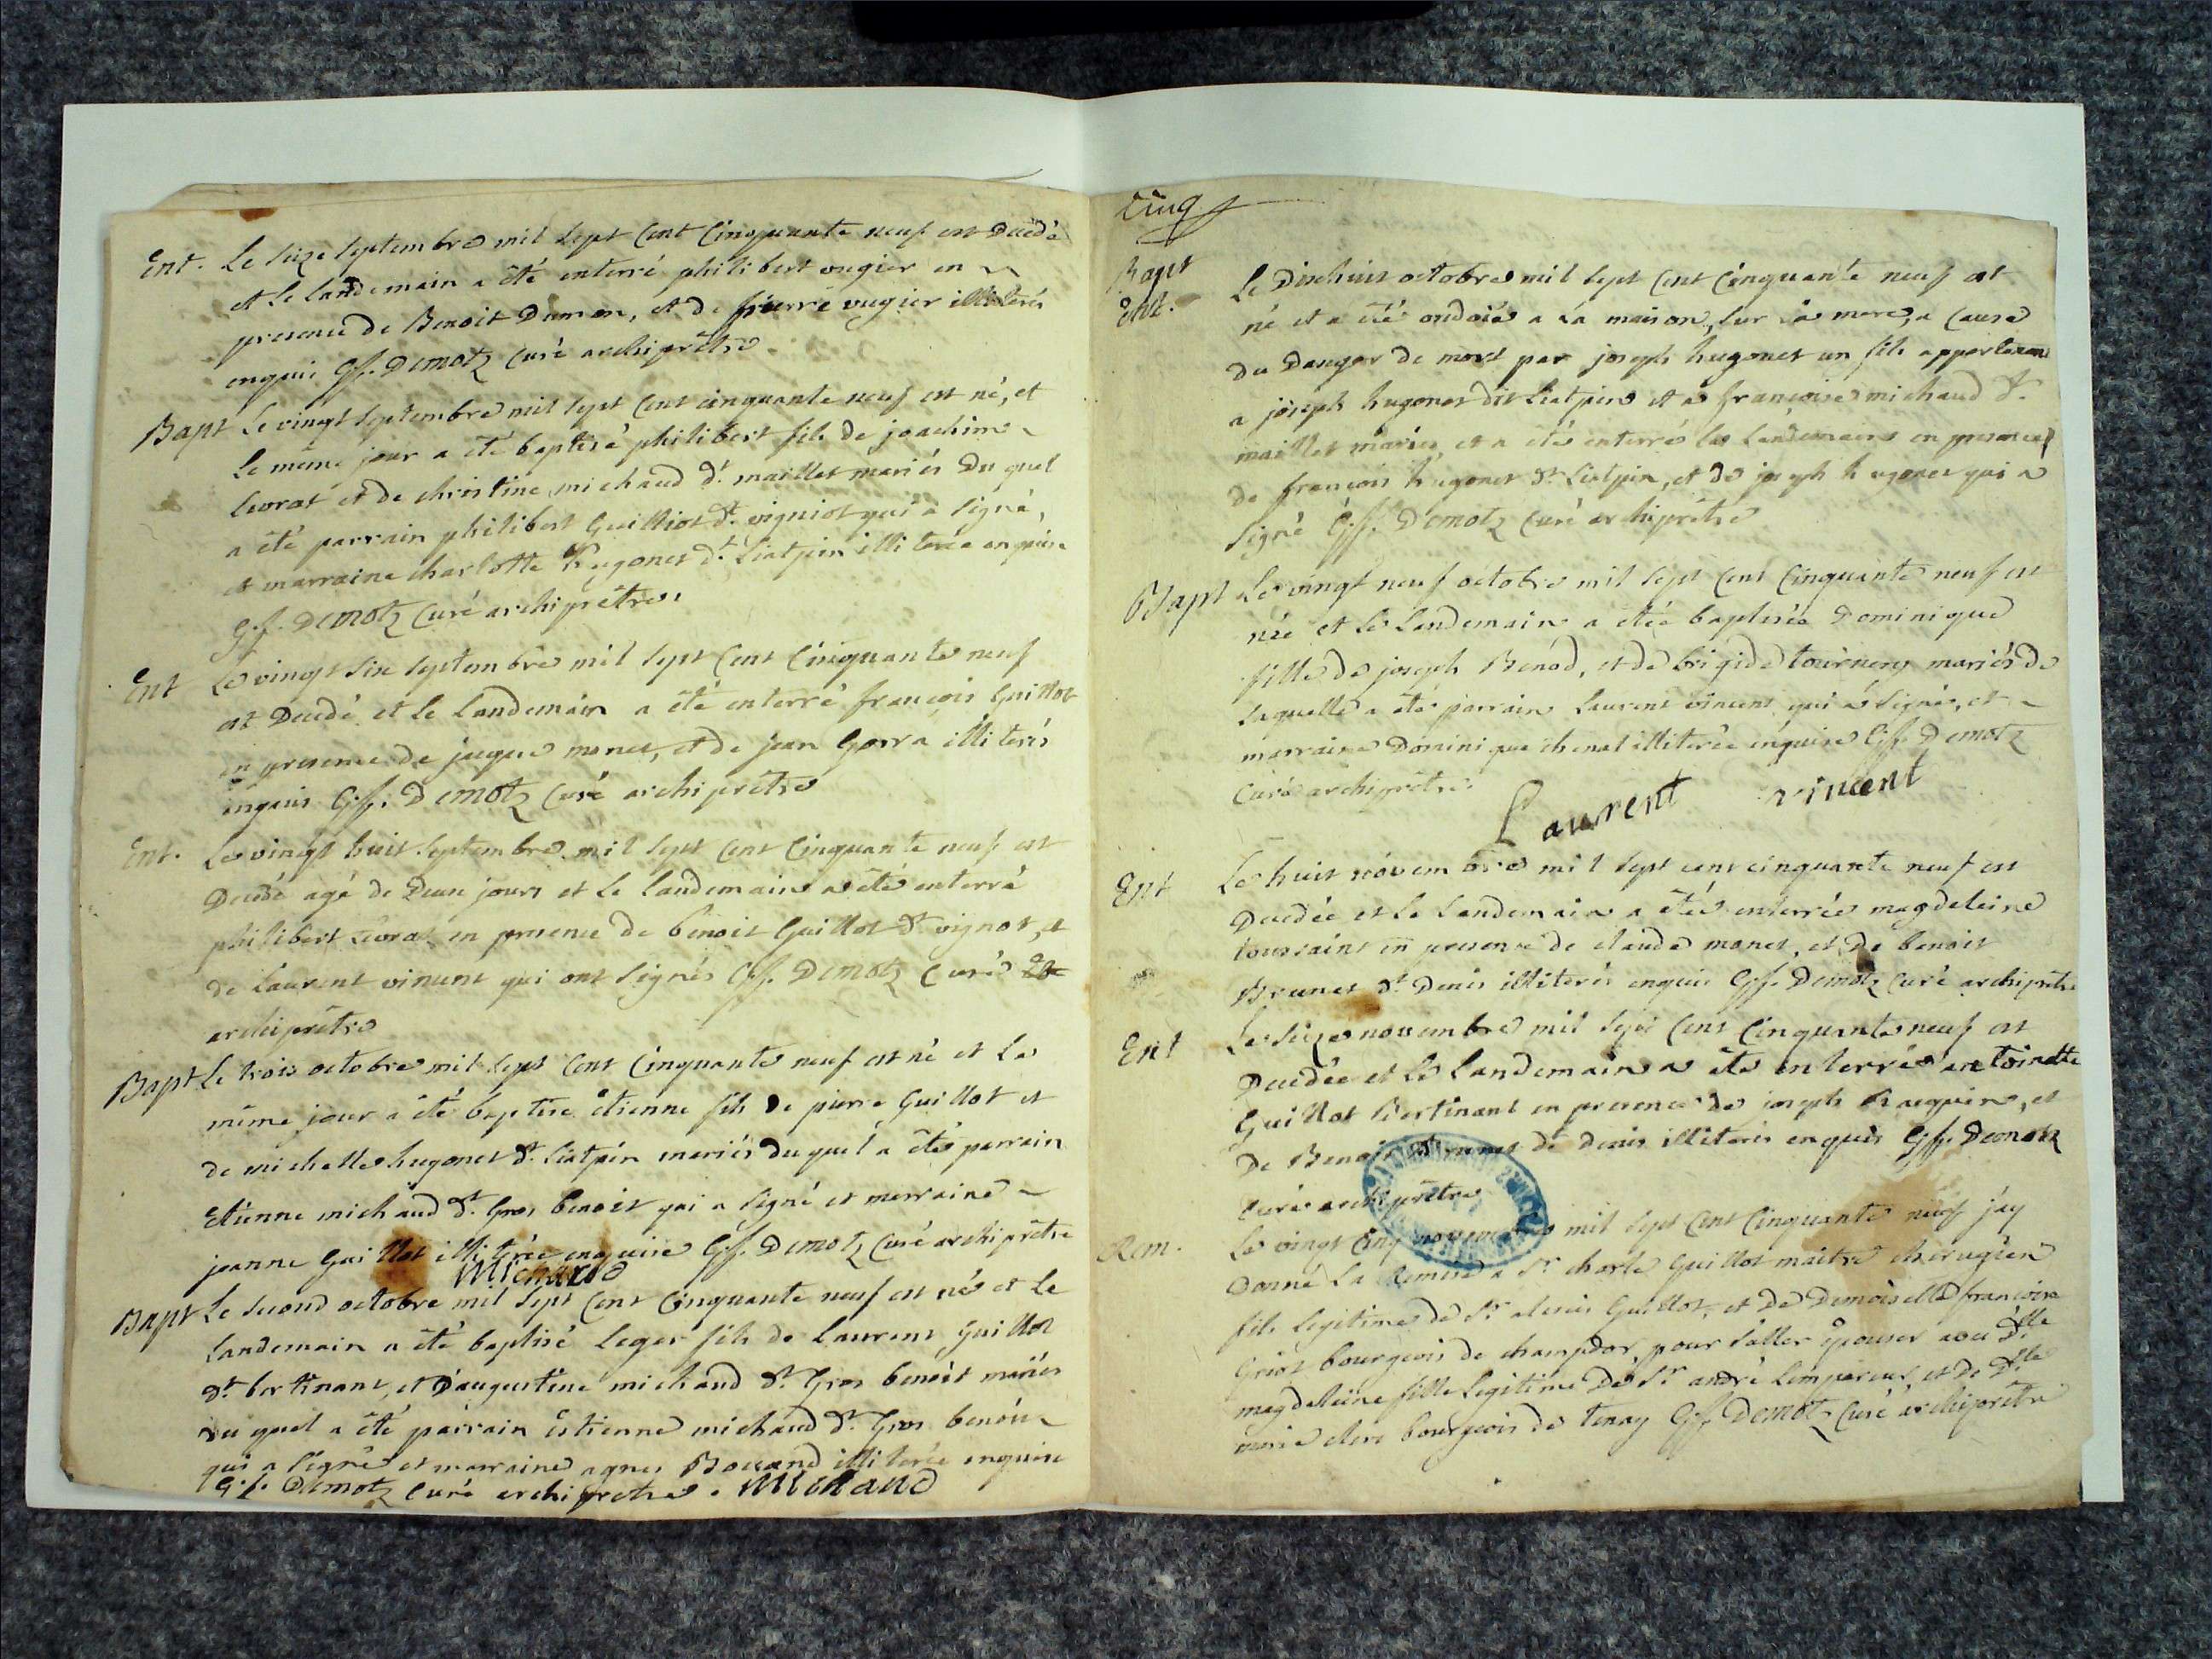 Ent. Le seize septembre mil sept cent cinquante neuf est decedé
et le landemain a été enterré philibert vugier en
presence de Benoit Dumon, et de pierre vugier illiterés
enquis Gf. Demotz curé archiprêtre
Bapt Le vingt septembre mil sept cent cinquante neuf est né, et
le même jour a été baptisé philibert fils de joachim
levrat et de christine michaud dt. maillet mariés du quel
a été parrain philibert Guilliot dt. vigniot qui a signé,
et marraine charlotte hugonet dt. Liatpin illiterée enquise
Gf. Demotz curé archiprêtre.
Ent Le vingt six septembre mil sept cent cinquante neuf
est decedé et le landemain a été enterré françois Guillot
en presence de jaque monet, et de jean Gorra illiterés
enquis Gf. Demotz curé archiprêtre
Ent. Le vingt huit septembre mil sept cent cinquante neuf est
decedé agé de deux jours et le landemain a été enterré
philibert levrat en presence de benoit Guillot dt vignot, et
de laurent vincent qui ont signés Gf. Demotz curé
archiprêtre
Bapt Le trois octobre mil sept cent cinquante neuf est né et le
même jour a été baptisé étienne fils de pierre Guillot et
de michelle hugonet dt. Liatpin mariés du quel a été parrain
Etienne michaud dt. Gros benoit qui a signé et marraine
jeanne Guillot illiterée enquise Gf. Demotz curé archiprêtre
Michaud
Bapt Le second octobre mil sept cent cinquante neuf est né et le
landemain a été baptisé leger fils de laurent Guillot
dt. bertinant, et d'augustine michaud dt. Gros benoit mariés
du quel a été parrain éstienne michaud dt. Gros benoit
qui a signé et marraine agnes Bouand illiterée enquise
Gf. Demotz curé archiprêtre. Michaud
cinq
Bapt
Ent.
Le dixhuit octobre mil sept cent cinquante neuf est
né et a été ondoié a la maison, sur sa mere, a cause
du danger de mort par joseph hugonet un fils appartenant
a joseph hugonet dit Liatpin et a françoise michaud dt.
maillet mariés, et a été enterré le landemain en presence
de françois hugonet dt Liatpin, et de joseph hugonet qui a
signé Gf. Demotz curé archiprêtre
Bapt Le vingt neuf octobre mil sept cent cinquante neuf est
née et le landemain a étée baptisée Dominique
fille de joseph Benod, et de brigide tournery mariés de
laquelle a été parrain laurent vincent qui a signé, et
marraine Dominique chenal illiterée enquise Gf. Demotz
Curé archiprêtre
Laurent vincent
Ent Le huit novembre mil sept cent cinquante neuf est
Decedée et le landemain a étée enterrée magdeleine
toussaint en presence de claude monet, et de benoit
Brunet dt. Denis illiterés enquis Gf. Demotz curé archiprêtre
Ent Le seize novembre mil sept cent cinquante neuf est
Decedée et le landemain a été enterrée antoinette
Guillot bertinant en presence de joseph, et
De Benoit Brunet dt denis illiterés enquis Gf. Demotz
Curé archiprêtre
Rem. Le vingt cinq novembre mil sept cent cinquante neuf j'ay
Donné la Remise a Sr. charle Guillot maitre chirugien
fils legitime de Sr. Guillot, et de Demoiselle françoise
bourgeois de champdor pour s'aller épouser avec Dlle
magdeleine fille legitime de Sr andré lempereur, et de Dlle
marie clerc bourgeois de tenay Gf. Demotz curé archiprêtre